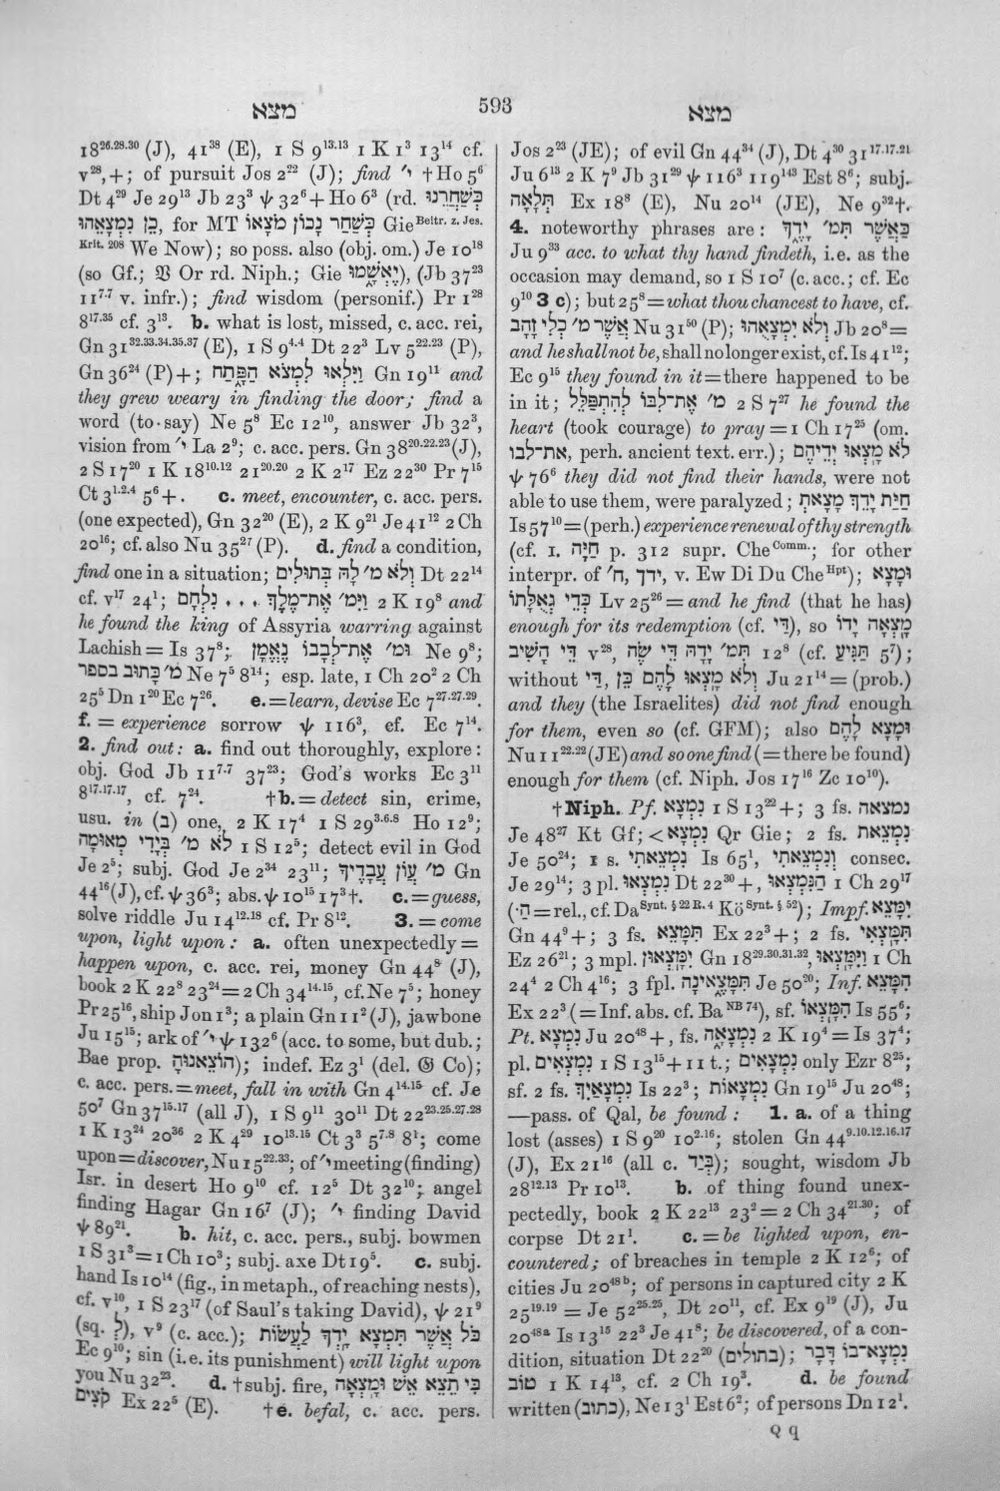 מצא
593
מצא
18²⁶·²⁸·³⁰ (J), 41³⁸ (E), 1 S 9¹³·¹³ 1 K 1³ 13¹⁴ cf.
v²⁸,+; of pursuit Jos 2²² (J); find י׳ †Ho 5⁶
Dt 4²⁹ Je 29¹³ Jb 23³ ψ 32⁶+Ho 6³ (rd. כְּשַׁחֲרֵנוּ
כֵּן נִמְצָאֵהוּ, for MT כְּשַׁחַר נָכוֹן מֹצָאוֹ Gie Beitr. z. Jes.
Krit. 208 We Now); so poss. also (obj. om.) Je 10¹⁸
(so Gf.; 𝔙 Or rd. Niph.; Gie יֶאְשָׁמוּ), (Jb 37²³
11⁷·⁷ v. infr.); find wisdom (personif.) Pr 1²⁸
8¹⁷·³⁵ cf. 3¹³. b. what is lost, missed, c. acc. rei,
Gn 31³²·³³·³⁴·³⁵·³⁷ (E), 1 S 9⁴·⁴ Dt 22³ Lv 5²²·²³ (P),
Gn 36²⁴ (P)+; וַיִּלְאוּ לִמְצֹא הַפָּתַח Gn 19¹¹ and
they grew weary in finding the door; find a
word (to say) Ne 5⁸ Ec 12¹⁰, answer Jb 32³,
vision from י׳ La 2⁹; c. acc. pers. Gn 38²⁰·²²·²³ (J),
2 S 17²⁰ 1 K 18¹⁰·¹² 21²⁰·²⁰ 2 K 2¹⁷ Ez 22³⁰ Pr 7¹⁵
Ct 3¹·²·⁴ 5⁶+. c. meet, encounter, c. acc. pers.
(one expected), Gn 32²⁰ (E), 2 K 9²¹ Je 41¹² 2 Ch
20¹⁶; cf. also Nu 35²⁷ (P). d. find a condition,
find one in a situation; וְלֹא מ׳ לָהּ בְּתוּלִים Dt 22¹⁴
cf. v¹⁷ 24¹; וַיִּמ׳ אֶת־מֶלֶךְ ... נִלְחָם 2 K 19⁸ and
he found the king of Assyria warring against
Lachish = Is 37⁸; וּמ׳ אֶת־לְבָבוֹ נֶאֱמָן Ne 9⁸;
מ׳ כָּתוּב בספר Ne 7⁵ 8¹⁴; esp. late, 1 Ch 20² 2 Ch
25⁵ Dn 1²⁰ Ec 7²⁶. e. = learn, devise Ec 7²⁷·²⁷·²⁹.
f. = experience sorrow ψ 116³, cf. Ec 7¹⁴.
2. find out: a. find out thoroughly, explore:
obj. God Jb 11⁷·⁷ 37²³; God's works Ec 3¹¹
8¹⁷·¹⁷·¹⁷, cf. 7²⁴. †b. = detect sin, crime,
usu. in (ב) one, 2 K 17⁴ 1 S 29³·⁶·⁸ Ho 12⁹;
לֹא מ׳ בְּיָדִי מְאוּמָה 1 S 12⁵; detect evil in God
Je 2⁵; subj. God Je 2³⁴ 23¹¹; מ׳ עֲוֹן עֲבָדֶיךָ Gn
44¹⁶ (J), cf. ψ 36³; abs. ψ 10¹⁵ 17³†. c. = guess,
solve riddle Ju 14¹²·¹⁸ cf. Pr 8¹². 3. = come
upon, light upon: a. often unexpectedly =
happen upon, c. acc. rei, money Gn 44⁸ (J),
book 2 K 22⁸ 23²⁴ = 2 Ch 34¹⁴·¹⁵, cf. Ne 7⁵; honey
Pr 25¹⁶, ship Jon 1³; a plain Gn 11² (J), jawbone
Ju 15¹⁵; ark of י׳ ψ 132⁶ (acc. to some, but dub.;
Bae prop. הוֹצֵאנוּהָ); indef. Ez 3¹ (del. 𝔊 Co);
c. acc. pers. = meet, fall in with Gn 4¹⁴·¹⁵ cf. Je
50⁷ Gn 37¹⁵·¹⁷ (all J), 1 S 9¹¹ 30¹¹ Dt 22²³·²⁵·²⁷·²⁸
1 K 13²⁴ 20³⁶ 2 K 4²⁹ 10¹³·¹⁵ Ct 3³ 5⁷·⁸ 8¹; come
upon = discover, Nu 15³²·³³; of י׳ meeting (finding)
Isr. in desert Ho 9¹⁰ cf. 12⁵ Dt 32¹⁰; angel
finding Hagar Gn 16⁷ (J); י׳ finding David
ψ 89²¹. b. hit, c. acc. pers., subj. bowmen
1 S 31³ = 1 Ch 10³; subj. axe Dt 19⁵. c. subj.
hand Is 10¹⁴ (fig., in metaph., of reaching nests),
cf. v¹⁰, 1 S 23¹⁷ (of Saul's taking David), ψ 21⁹
(sq. לְ), v⁹ (c. acc.); כֹּל אֲשֶׁר תִּמְצָא יָדְךָ לַעֲשׂוֹת
Ec 9¹⁰; sin (i.e. its punishment) will light upon
you Nu 32²³. d. †subj. fire, כִּי תֵצֵא אֵשׁ וּמָצְאָה
קֹצִים Ex 22⁵ (E). †e. befal, c. acc. pers.
Jos 2²³ (JE); of evil Gn 44³⁴ (J), Dt 4³⁰ 31¹⁷·¹⁷·²¹
Ju 6¹³ 2 K 7⁹ Jb 31²⁹ ψ 116³ 119¹⁴³ Est 8⁶; subj.
תְּלָאָה Ex 18⁸ (E), Nu 20¹⁴ (JE), Ne 9³²†.
4. noteworthy phrases are: כַּאֲשֶׁר תִּמ׳ יָדֶךָ
Ju 9³³ acc. to what thy hand findeth, i.e. as the
occasion may demand, so 1 S 10⁷ (c. acc.; cf. Ec
9¹⁰ 3 c); but 25⁸ = what thou chancest to have, cf.
אֲשֶׁר מ׳ כְלִי זָהָב Nu 31⁵⁰ (P); וְלֹא יִמְצָאֻהוּ Jb 20⁸ =
and he shall not be, shall no longer exist, cf. Is 41¹²;
Ec 9¹⁵ they found in it = there happened to be
in it; מ׳ אֶת־לִבּוֹ לְהִתְפַּלֵּל 2 S 7²⁷ he found the
heart (took courage) to pray = 1 Ch 17²⁵ (om.
את־לבו, perh. ancient text. err.); לֹא מָצְאוּ יְדֵיהֶם
ψ 76⁶ they did not find their hands, were not
able to use them, were paralyzed; חַיַּת יָדֵךְ מָצָאת
Is 57¹⁰ = (perh.) experience renewal of thy strength
(cf. I. חַיָּה p. 312 supr. Che Comm.; for other
interpr. of ח׳, ידך, v. Ew Di Du Che Hpt); וּמָצָא
כְּדֵי גְאֻלָּתוֹ Lv 25²⁶ = and he find (that he has)
enough for its redemption (cf. דַּי), so מָצְאָה יָדוֹ
דֵּי הָשִׁיב v²⁸, תִּמ׳ יָדָהּ דֵּי שֶׂה 12⁸ (cf. תַּגִּיעַ 5⁷);
without דַּי, וְלֹא מָצְאוּ לָהֶם כֵּן Ju 21¹⁴ = (prob.)
and they (the Israelites) did not find enough
for them, even so (cf. GFM); also וּמָצָא לָהֶם
Nu 11²²·²² (JE) and so one find (= there be found)
enough for them (cf. Niph. Jos 17¹⁶ Zc 10¹⁰).
†Niph. Pf. נִמְצָא 1 S 13²²+; 3 fs. נמצאה
Je 48²⁷ Kt Gf; < נִמְצָא Qr Gie; 2 fs. נִמְצֵאת
Je 50²⁴; 1 s. נִמְצֵאתִי Is 65¹, וְנִמְצֵאתִי consec.
Je 29¹⁴; 3 pl. נִמְצְאוּ Dt 22²⁰+, הַנִּמְצְאוּ 1 Ch 29¹⁷
(הַ = rel., cf. Da Synt. § 22 R. 4 Kö Synt. § 52); Impf. יִמָּצֵא
Gn 44⁹+; 3 fs. תִּמָּצֵא Ex 22³+; 2 fs. תִּמָּצְאִי
Ez 26²¹; 3 mpl. יִמָּצְאוּן Gn 18²⁹·³⁰·³¹·³², וַיִּמָּצְאוּ 1 Ch
24⁴ 2 Ch 4¹⁶; 3 fpl. תִּמָּצֶאינָה Je 50²⁰; Inf. הִמָּצֵא
Ex 22³ (= Inf. abs. cf. Ba NB 74), sf. הִמָּצְאוֹ Is 55⁶;
Pt. נִמְצָא Ju 20⁴⁸+, fs. נִמְצָאָה 2 K 19⁴ = Is 37⁴;
pl. נִמְצְאִים 1 S 13¹⁵+11 t.; נִמְצָאִים only Ezr 8²⁵;
sf. 2 fs. נִמְצָאַיִךְ Is 22³; נִמְצָאוֹת Gn 19¹⁵ Ju 20⁴⁸;
—pass. of Qal, be found: 1. a. of a thing
lost (asses) 1 S 9²⁰ 10²·¹⁶; stolen Gn 44⁹·¹⁰·¹²·¹⁶·¹⁷
(J), Ex 21¹⁶ (all c. בְּיַד); sought, wisdom Jb
28¹²·¹³ Pr 10¹³. b. of thing found unex-
pectedly, book 2 K 22¹³ 23² = 2 Ch 34²¹·³⁰; of
corpse Dt 21¹. c. = be lighted upon, en-
countered; of breaches in temple 2 K 12⁶; of
cities Ju 20⁴⁸ᵇ; of persons in captured city 2 K
25¹⁹·¹⁹ = Je 52²⁵·²⁵, Dt 20¹¹, cf. Ex 9¹⁹ (J), Ju
20⁴⁸ᵃ Is 13¹⁵ 22³ Je 41⁸; be discovered, of a con-
dition, situation Dt 22²⁰ (בתולים); נִמְצָא־בוֹ דָּבָר
טוֹב 1 K 14¹³, cf. 2 Ch 19³. d. be found
written (כתוב), Ne 13¹ Est 6²; of persons Dn 12¹.
Q q